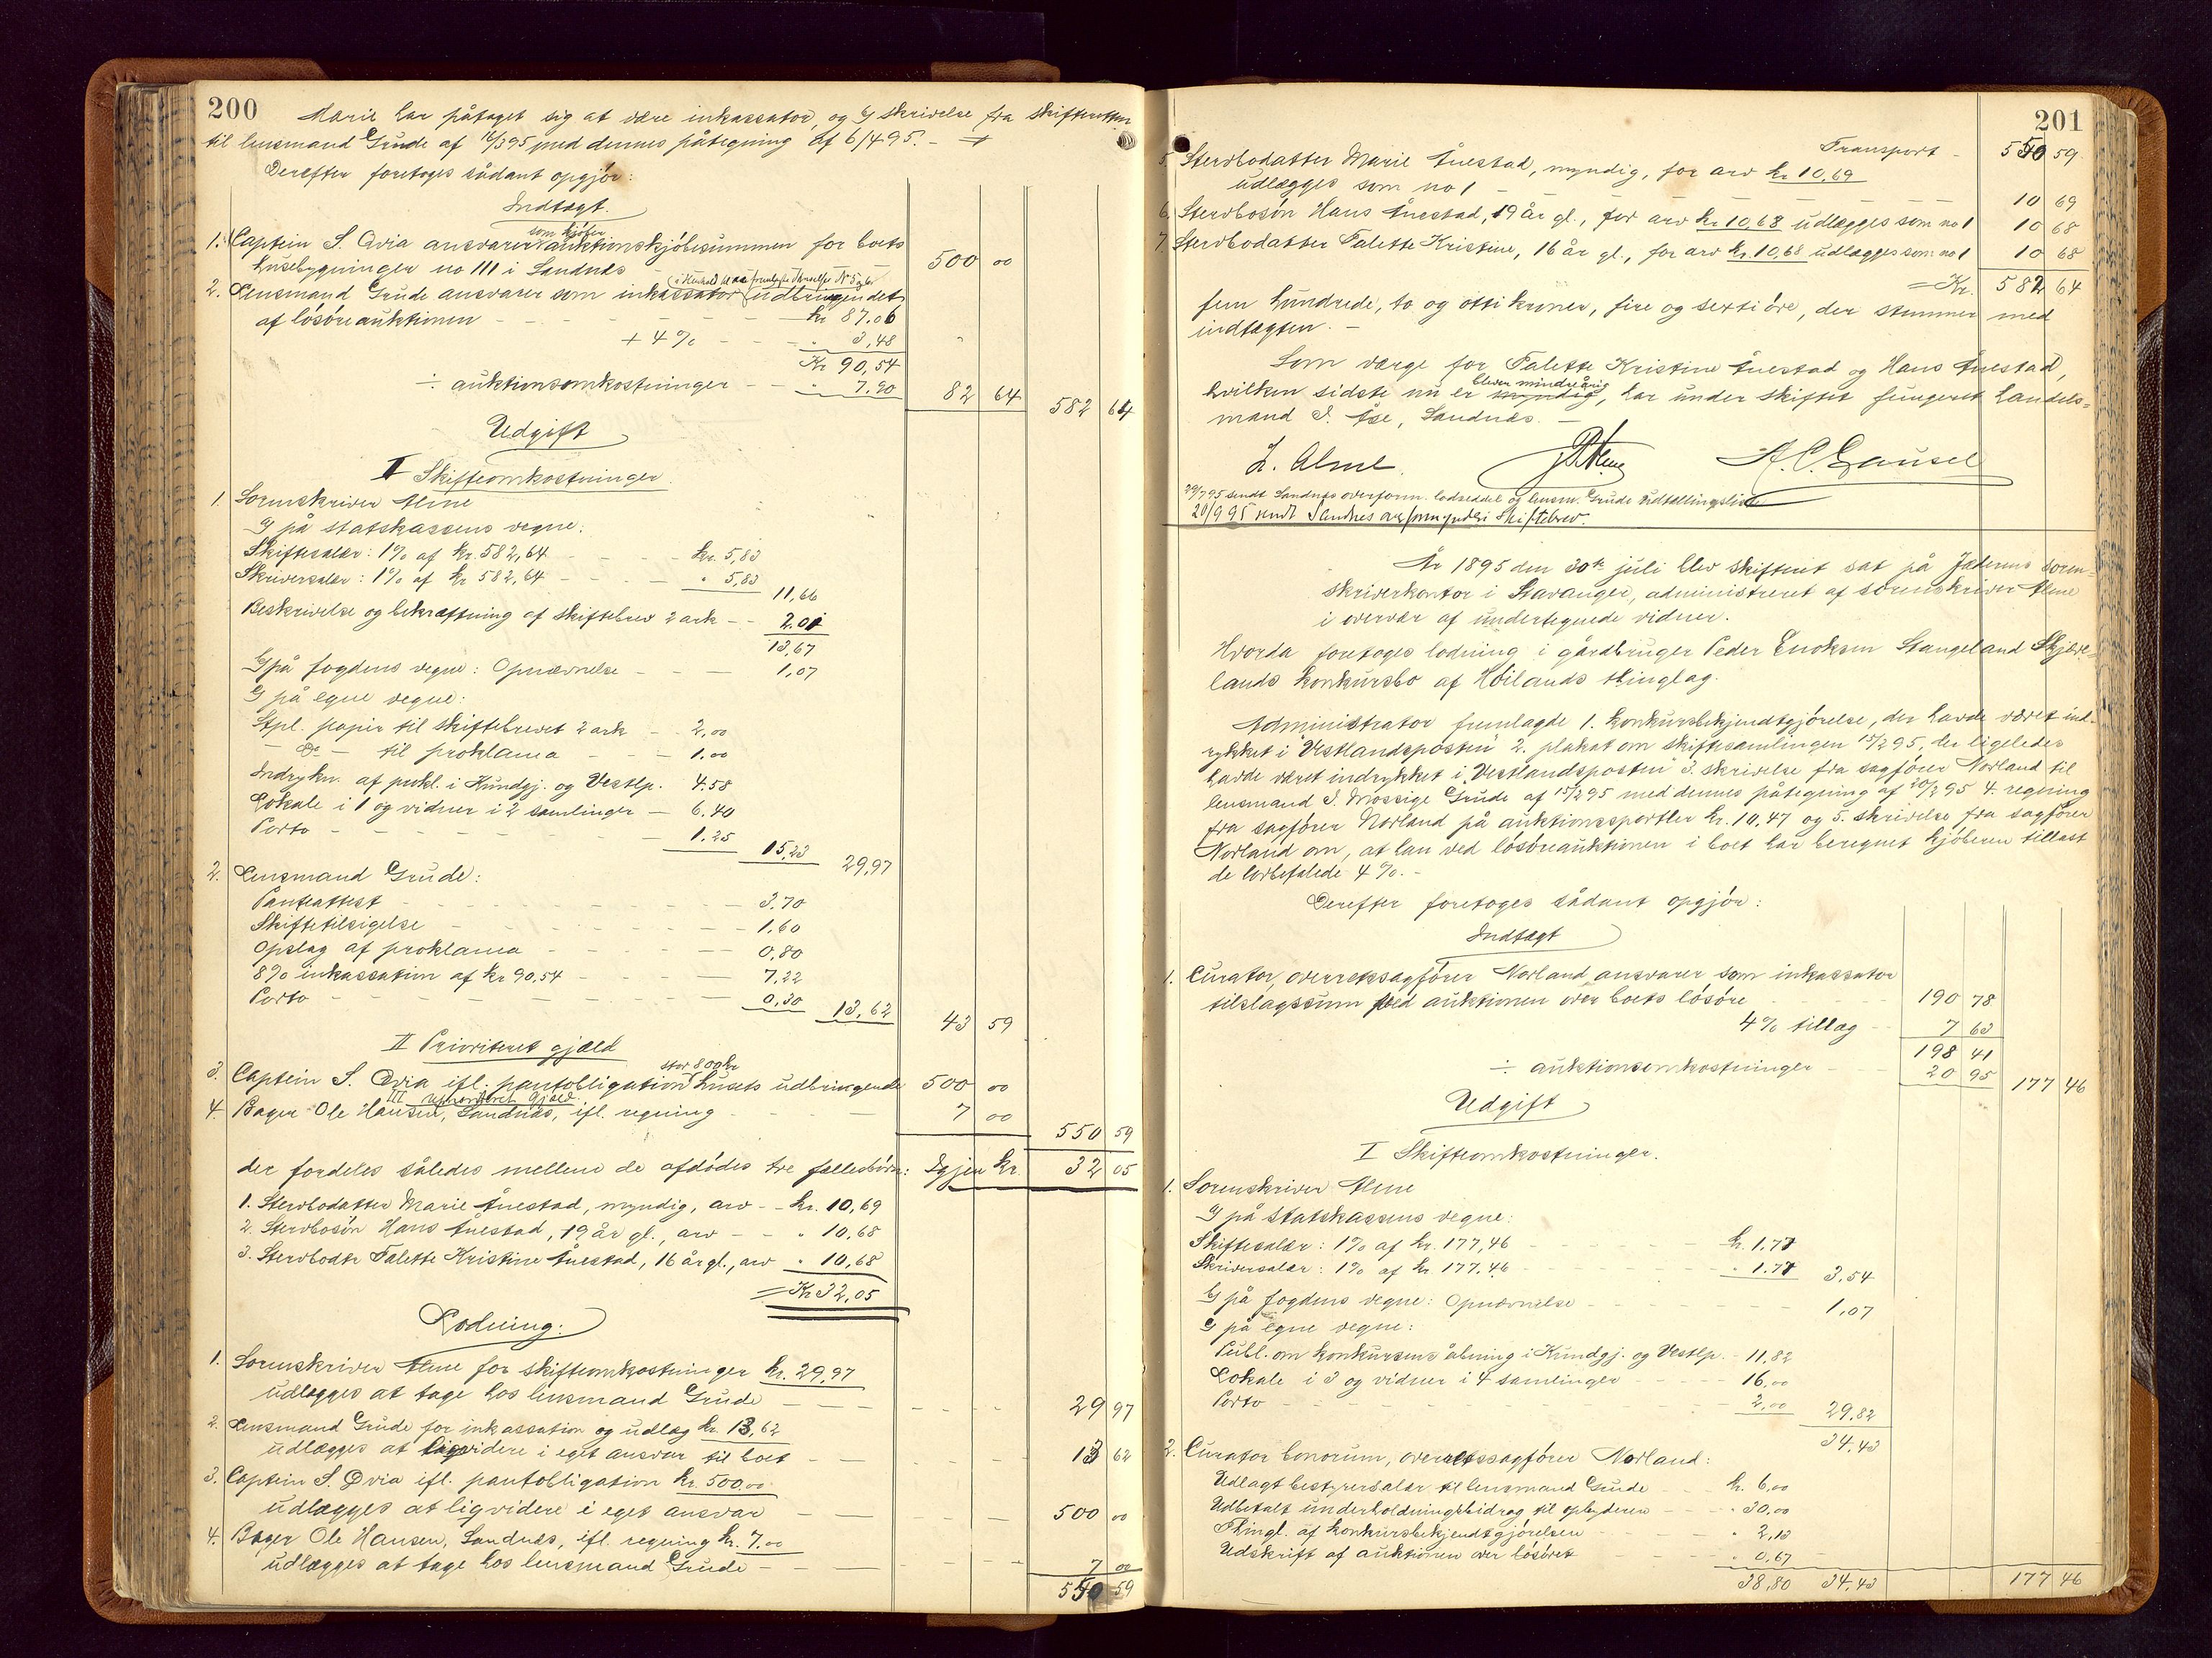 200
Marie har påtaget sig at være inkassator, og G skrivelse fra skifteretten
til lensmand Grude af 16/3 95 med dennes påtegning af 6/4 95. –
Derefter foretoges sådant opgjør:
Indtægt.
som kjøber
1. Captein S. Øvia ansvarer auktionskjøbesummen for boets
husebygninger no 111 i Sandnæs 500 00
i Henhold til fremlagte Skrivelse No 5
2. Lensmand Grude ansvarer som inkassator udbringendet
af løsøreauktionen – – – – – kr 87.06
+ 4% – – – " 3,48
Kr 90,54
÷ auktionsomkostninger – – " 7.90 82 64 582 64
Udgift
I Skifteomkostninger.
1. Sorenskriver Alme
G på statskassens vegne:
Skiftesalær: 1% af kr. 582,64 – – – kr. 5,83
Skriversalær: 1% af kr 582,64 – – – " 5,83
11,66
Beskrivelse og bekræftning af skiftebrev 2 ark – – 2.01
13,67
G på fogdens vegne: Opnævnelse – – – 1,07
G på egne vegne:
Stpl. papir til skiftebrevet 2 ark – – 2,00
– Do – til proklama – – 1.00
Indrykn. af prokl. i Kundgj. og Vestlp. 4.58
Lokale i 1 og vidner i 2 samlinger – 6.40
Porto – – – – – – 1.25 15,23 29,97
2. Lensmand Grude:
Panteattest – – – – – – – 3.70
Skiftetilsigelse – – – – – – 1.60
Opslag af proklama – – – – 0,80
8% inkassation af kr 90,54 – – – – 7,22
Porto – – – – – – – – 0,30 13,62 43 59
II Prioriteret gjæld
stor 800 kr
3. Captein S. Øvia ifl. pantobligation husets udbringende 500 00
III uprioriteret Gjæld.
4. Bager Ole Hansen, Sandnæs, ifl. regning – – – 7 00 550 59
der fordeles således mellem de afdødes tre fællesbørn: Igjen kr. 32 05
1. Stervbodatter Marie Auestad, myndig, arv – – kr. 10,69
2. Stervbosøn Hans Auestad, 19 år gl., arv – – " 10,68
3. Stervbodtr Talette Kristine Auestad, 16 år gl., arv " 10,68
= Kr 32,05
Lodning:
1. Sorenskriver Alme for skifteomkostninger kr. 29,97
udlægges at tage hos lensmand Grude – – – – – 29 97
2. Lensmand Grude for inkassation og udlæg kr. 13,62
udlægges at liqvidere i eget ansvar til boet – – – – 13 62
3. Captein S. Øvia ifl. pantobligation kr. 500,00
udlægges at liqvidere i eget ansvar – – – – – 500 00
4. Bager Ole Hansen, Sandnæs, ifl. regning kr. 7.00
udlægges at tage hos lensmand Grude – – – – – 7 00
550 59
201
Transport – 550 59
5. Stervbodatter Marie Auestad, myndig, for arv kr 10,69
udlægges som no 1 – – – – – – – 10 69
6. Stervbosøn Hans Auestad, 19 år gl., for arv kr 10,68 udlægges som no 1 10 68
7. Stervbodatter Talette Kristine, 16 år gl., for arv kr. 10,68 udlægges som no 1 10 68
= Kr. 582 64
fem hundrede, to og otti kroner, fire og sexti øre, der stemmer med
indtægten. –
Som værge for Talette Kristine Auestad og Hans Auestad,
bleven mindreårig
hvilken sidste nu er myndig, har under skiftet fungeret handels-
mand I. Ase, Sandnæs. –
L. Alme. A. C. Gausel
29/7 95 sendt Sandnæs overform. lodseddel og lensm. Grude udtællingsliste
20/9 95 sendt Sandnes overformynderi Skiftebrev.
År 1895 den 30te juli blev skifteret sat på Jæderens soren-
skriverkontor i Stavanger, administreret af sorenskriver Alme
i overvær af undertegnede vidner.
Hvorda foretoges lodning i gårdbruger Peder Enoksen Stangeland Skjæve-
lands konkursbo af Høilands thinglag.
Administrator fremlagde 1. konkursbekjendtgjørelse, der havde været ind-
rykket i "Vestlandsposten" 2. plakat om skiftesamlingen 15/2 95, der ligeledes
havde været indrykket i "Vestlandsposten" 3. skrivelse fra sagfører Norland til
lensmand I. Mossige Grude af 15/2 95 med dennes påtegning af 20/2 95 4. regning
fra sagfører Norland på auktionssportler kr. 10,47 og 5. skrivelse fra sagfører
Norland om, at han ved løsøreauktionen i boet har beregnet kjøberen tillagt
de lovbefalede 4%. –
Derefter foretoges sådant opgjør:
Indtægt
1. Curator, overretssagfører Norland ansvarer som inkassator
tilslagssum ved auktionen over boets løsøre – – – 190 78
4% tillæg – 7 63
198 41
÷ auktionsomkostninger – – 20 95 177 46
Udgift
I Skifteomkostninger.
1. Sorenskriver Alme
G på statskassens vegne:
Skiftesalær: 1% af kr. 177,46 – – – – – kr. 1.77
Skriversalær: 1% af kr 177.46 – – – – – " 1.77 3,54
G på fogdens vegne: Opnævnelse – – – – – – 1,07
G på egne vegne:
Publ. om konkursens åbning i Kundgj. og Vestlp. – 11,82
Lokale i 3 og vidner i 4 samlinger – – – 16,00
Porto – – – – – – – – 2,00 29,82
34,43
2. Curator bonorum, overretssagfører Norland:
Udlagt bestyrersalær til lensmand Grude – – kr. 6,00
Udbetalt underholdningsbidrag til opbyderen – – " 30,00
Thingl. af konkursbekjendtgjørelsen – – – " 2,13
Udskrift af auktionen over løsøret – – – " 0,67
38,80 34,43 177 46